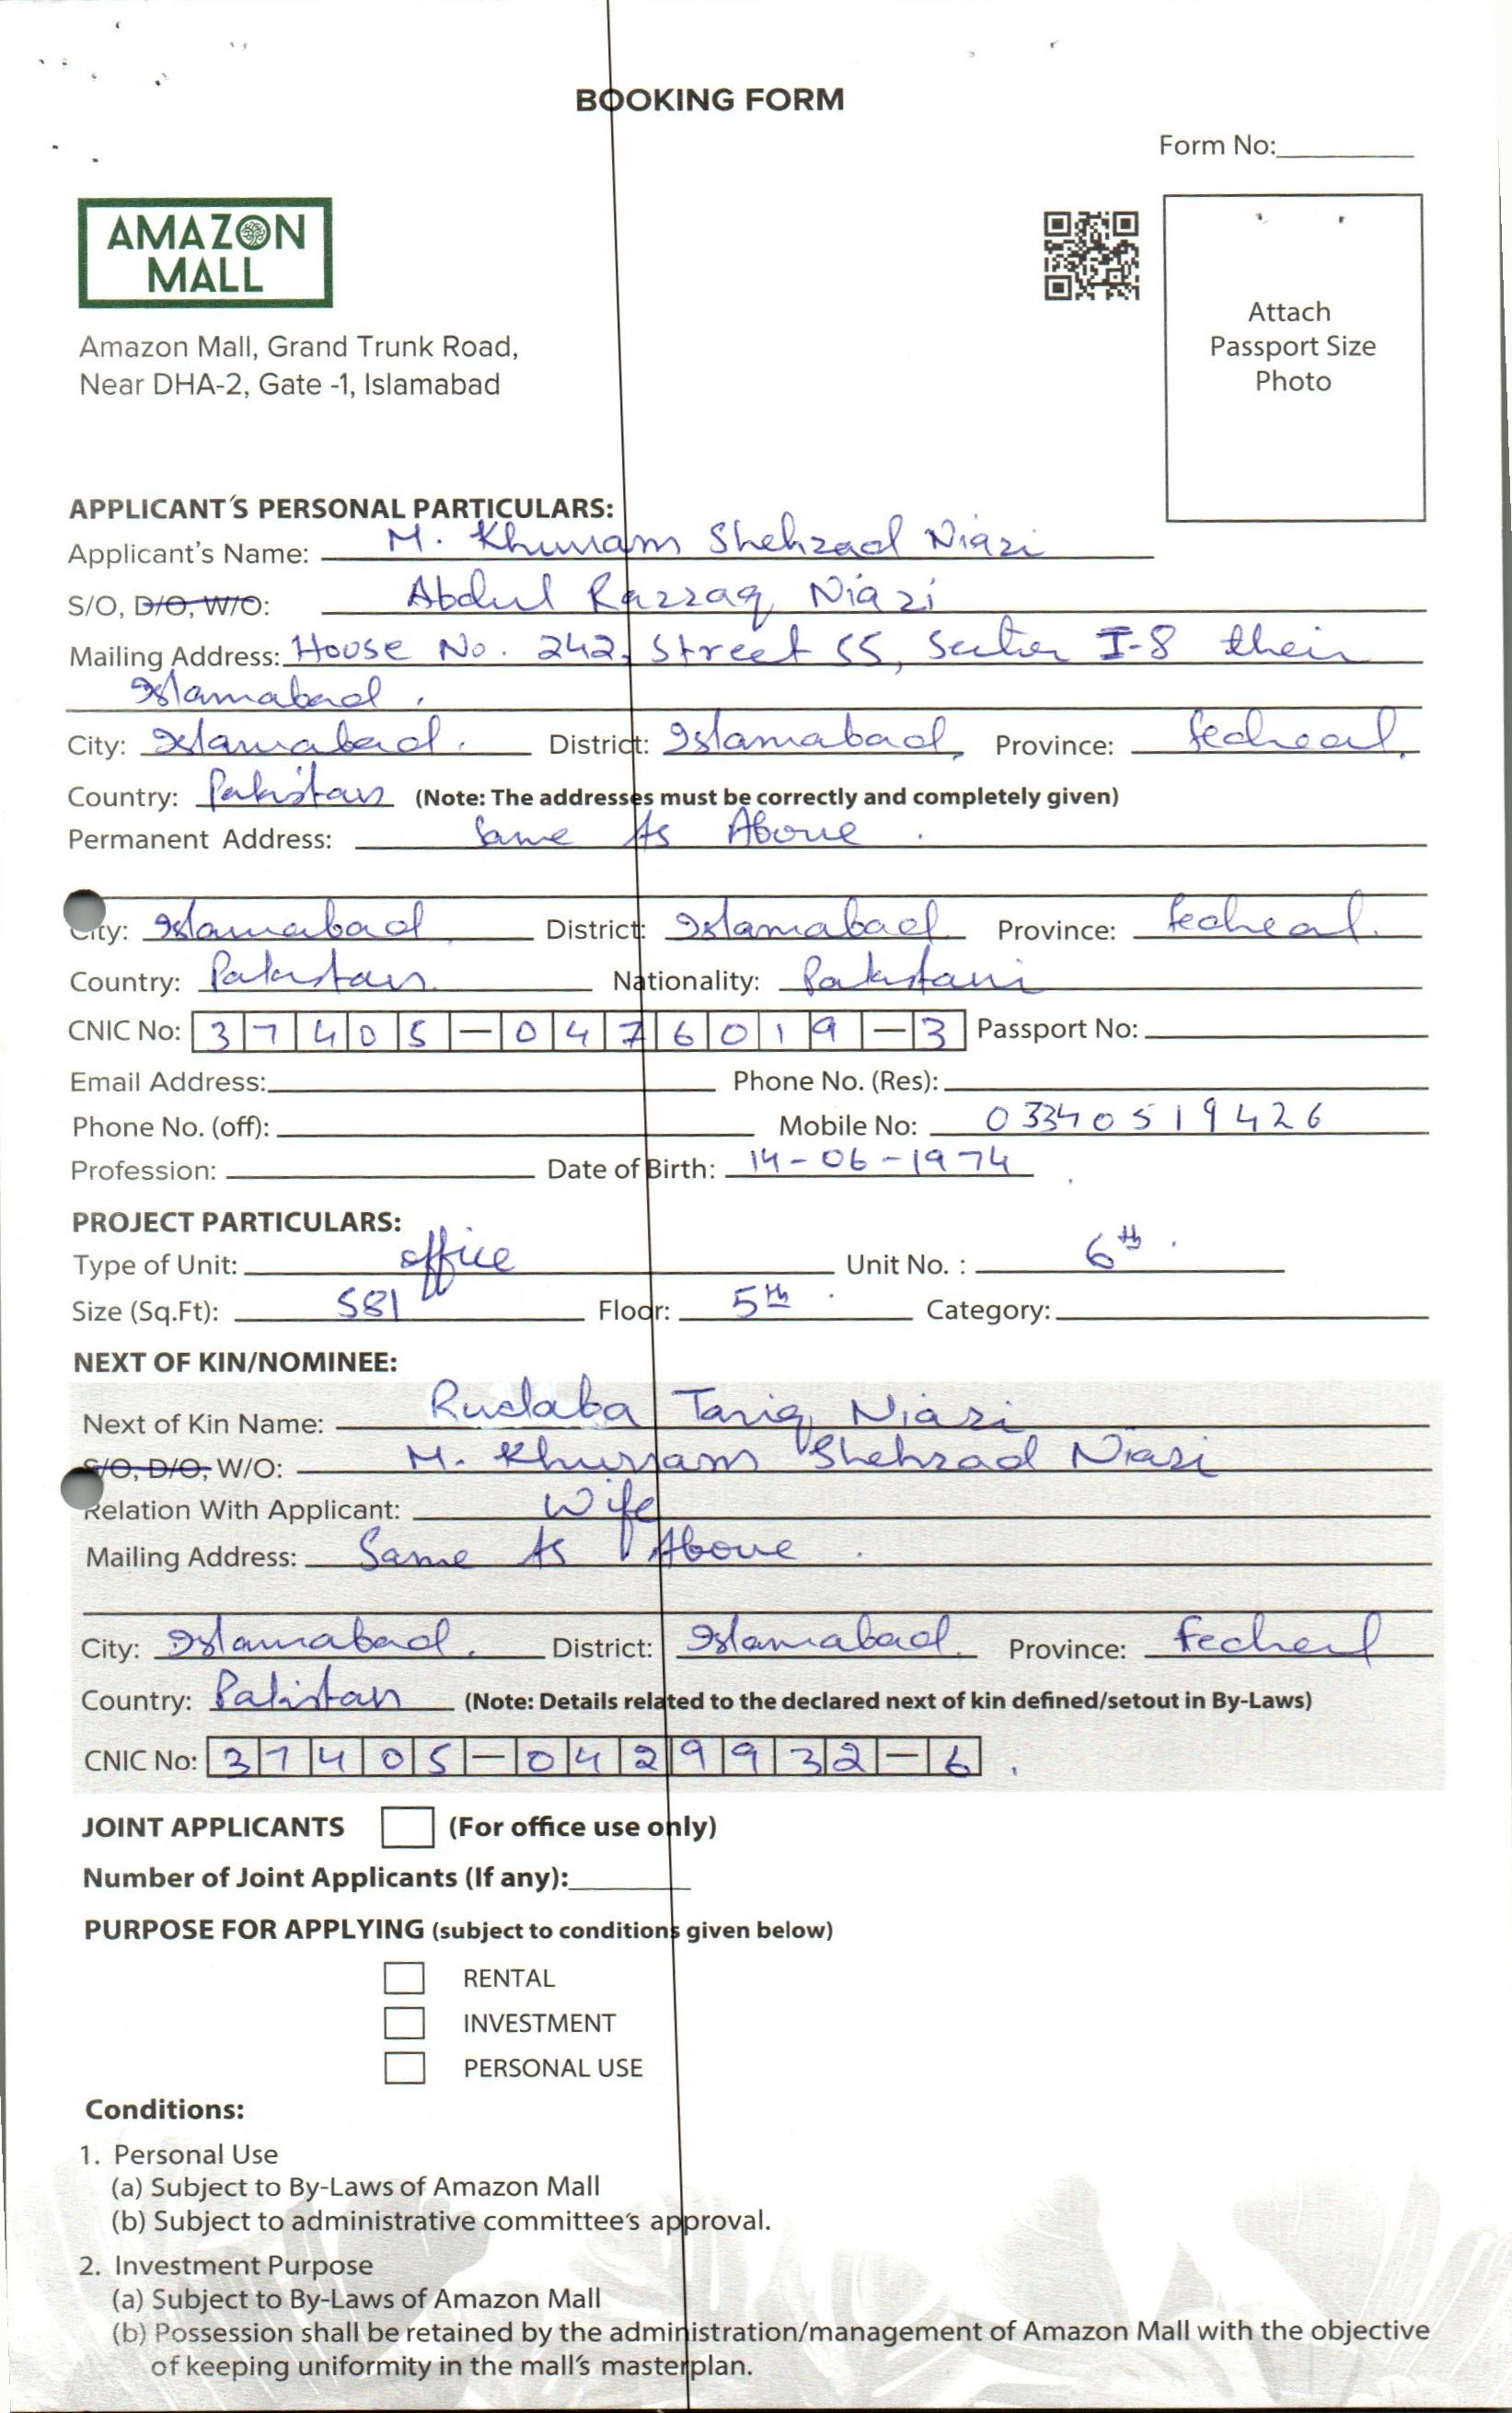 BOOKING FORM
Form No:
AMAZON
MALL
Attach
Passport Size
Photo
Amazon Mall, Grand Trunk Road,
Near DHA-2, Gate -1, Islamabad
APPLICANT'S PERSONAL PARTICULARS:
Applicant's Name: M. Khurram Shehzad Niazi
S/O, D/O, W/O: Abdul Razzaq Niazi
Mailing Address: House No. 242, Street 55, Sector I-8
Islamabad.
City: Islamabad. District: Islamabad, Province: Federal.
Country: Pakistan (Note: The addresses must be correctly and completely given)
Permanent Address: Same As Above.
City: Islamabad District: Islamabad Province: Federal.
Country: Pakistan. Nationality: Pakistani
CNIC No: 37405-0476019-3 Passport No:
Email Address: Phone No. (Res):
Phone No. (off): Mobile No: 03340519426
Profession: Date of Birth: 14-06-1974
PROJECT PARTICULARS:
Type of Unit: office Unit No. : 6th.
Size (Sq.Ft): 581 Floor: 5th. Category:
NEXT OF KIN/NOMINEE:
Next of Kin Name: Rudaba Tariq Niazi
S/O, D/O, W/O: M. Khurram Shehzad Niazi
Relation With Applicant: Wife
Mailing Address: Same As Above.
City: Islamabad. District: Islamabad. Province: Federal
Country: Pakistan (Note: Details related to the declared next of kin defined/setout in By-Laws)
CNIC No: 37405-0429932-6.
JOINT APPLICANTS (For office use only)
Number of Joint Applicants (If any):
PURPOSE FOR APPLYING (subject to conditions given below)
RENTAL
INVESTMENT
PERSONAL USE
Conditions:
1. Personal Use
(a) Subject to By-Laws of Amazon Mall
(b) Subject to administrative committee's approval.
2. Investment Purpose
(a) Subject to By-Laws of Amazon Mall
(b) Possession shall be retained by the administration/management of Amazon Mall with the objective
of keeping uniformity in the mall's masterplan.